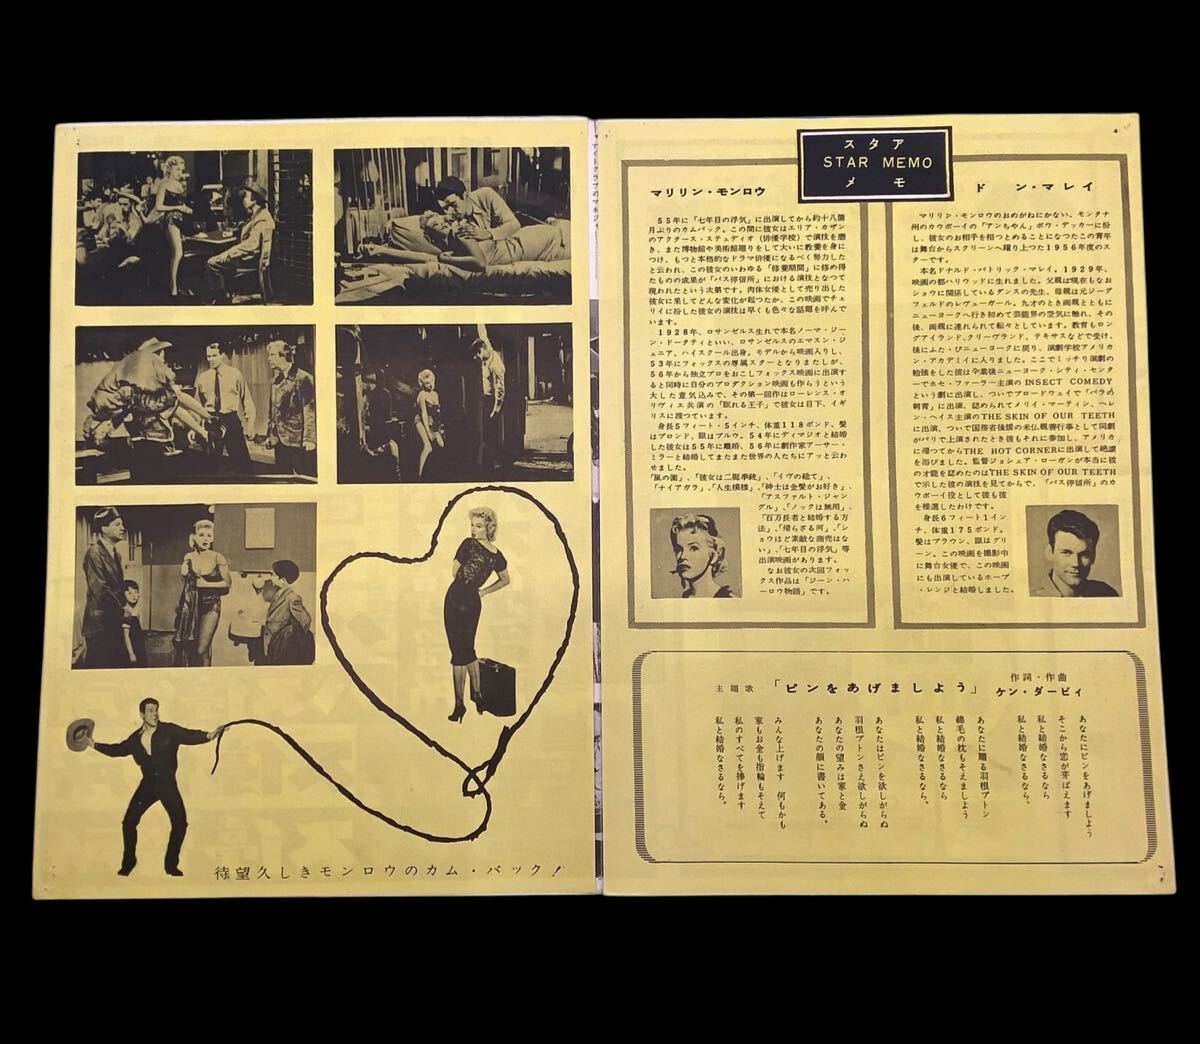 待望久しきモンロウのカム・バック！
4
スタア
STAR MEMO
メモ
マリリン・モンロウ
55年に「七年目の浮気」に出演してから約十八箇
月ぶりのカムバック。この間に彼女はエリア・カザン
のアクタース・ステュディオ（俳優学校）で演技を磨
き、また博物館や美術館廻りをして大いに教養を身に
つけ、もつと本格的なドラマ俳優になるべく努力した
と云われ、この彼女のいわゆる「修養期間」に修め得
たものの成果が「バス停留所」における演技となつて
現われたという次第です。肉体女優として売り出した
彼女に果してどんな変化が起つたか、この映画でチェ
リイに扮した彼女の演技は早くも色々な話題を呼んで
います。
1928年、ロサンゼルス生れで本名ノーマ・ジー
ン・ドータティといい、ロサンゼルスのエマスン・ジ
ュニア、ハイスクール出身。モデルから映画入りし、
53年にフォックスの専属スターとなりましたが、
56年から独立プロをおこしフォックス映画に出演す
ると同時に自分のプロダクション映画も作らうという
大した意気込みで、その第一回作はローレンス・オ
リヴィエ共演の「眠れる王子」で彼女は目下、イギ
リスに渡つています。
身長5フィート・5インチ、体重118ポンド、髪
はブロンド、眼はブルウ。54年にディマジオと結婚
した彼女は55年に離婚、56年に劇作家アーサー・
ミラーと結婚してまたまた世界の人たちにアッと云わ
せました。
「嵐の園」、「彼女は二挺拳銃」、「イヴの総て」、
「ナイアガラ」、「人生模様」、「紳士は金髪がお好き」、
「アスファルト・ジャン
グル」、「ノックは無用」、
「百万長者と結婚する方
法」、「帰らざる河」、「シ
ョウほど素敵な商売はな
い」、「七年目の浮気」等
出演映画があります。
なお彼女の次回フォッ
クス作品は「ジーン・ハ
ーロウ物語」です。
ドン・マレイ
マリリン・モンロウのおめがねにかない、モンタナ
州のカウボーイの「アンちゃん」ボウ・デッカーに扮
し、彼女のお相手を相つとめることになつたこの青年
は舞台からスクリーンへ躍り上つた1956年度のス
ターです。
本名ドナルド・パトリック・マレイ。1929年、
映画の都ハリウッドに生れました。父親は現在もなお
ショウに関係しているダンスの先生、母親は元ジーグ
フェルドのレヴューガール。九才のとき両親とともに
ニューヨークへ行き初めて芸能界の空気に触れ、その
後、両親に連れられて転々としています。教育もロン
グアイランド、クリーヴランド、テキサスなどで受け、
後にふたゝびニューヨークに戻り、演劇学校アメリカ
ン・アカデミイに入りました。ここでミッチリ演劇の
勉強をした彼は卒業後ニューヨーク・シティ・センタ
ーでホセ・ファーラー主演の INSECT COMEDY
という劇に出演し、ついでブロードウェイで「バラの
刺青」に出演、認められてメリイ・マーティン、ヘレ
ン・ヘイス主演のTHE SKIN OF OUR TEETH
に出演、ついで国務省後援の米仏親善行事として同劇
がパリで上演されたとき彼もそれに参加し、アメリカ
に帰つてからTHE HOT CORNERに出演して絶讃
を浴びました。監督ジョシュア・ローガンが本当に彼
の才能を認めたのはTHE SKIN OF OUR TEETH
で示した彼の演技を見てからで、「バス停留所」のカ
ウボーイ役として彼も彼
を推選したわけです。
身長6フィート1イン
チ、体重175ポンド。
髪はブラウン、眼はグリ
ーン。この映画を撮影中
に舞台女優で、この映画
にも出演しているホープ
・レンジと結婚しました。
主題歌 「ピンをあげましよう」 作詞・作曲 ケン・ダービィ
あなたにピンをあげましよう
そこから恋が芽ばえます
私と結婚なさるなら
私と結婚なさるなら。
あなたに贈る羽根ブトン
綿毛の枕もそえましよう
私と結婚なさるなら
私と結婚なさるなら。
あなたはピンを欲しがらぬ
羽根ブトンさえ欲しがらぬ
あなたの望みは家と金
あなたの顔に書いてある。
みんな上げます 何もかも
家もお金も指輪もそえて
私のすべてを捧げます
私と結婚なさるなら。